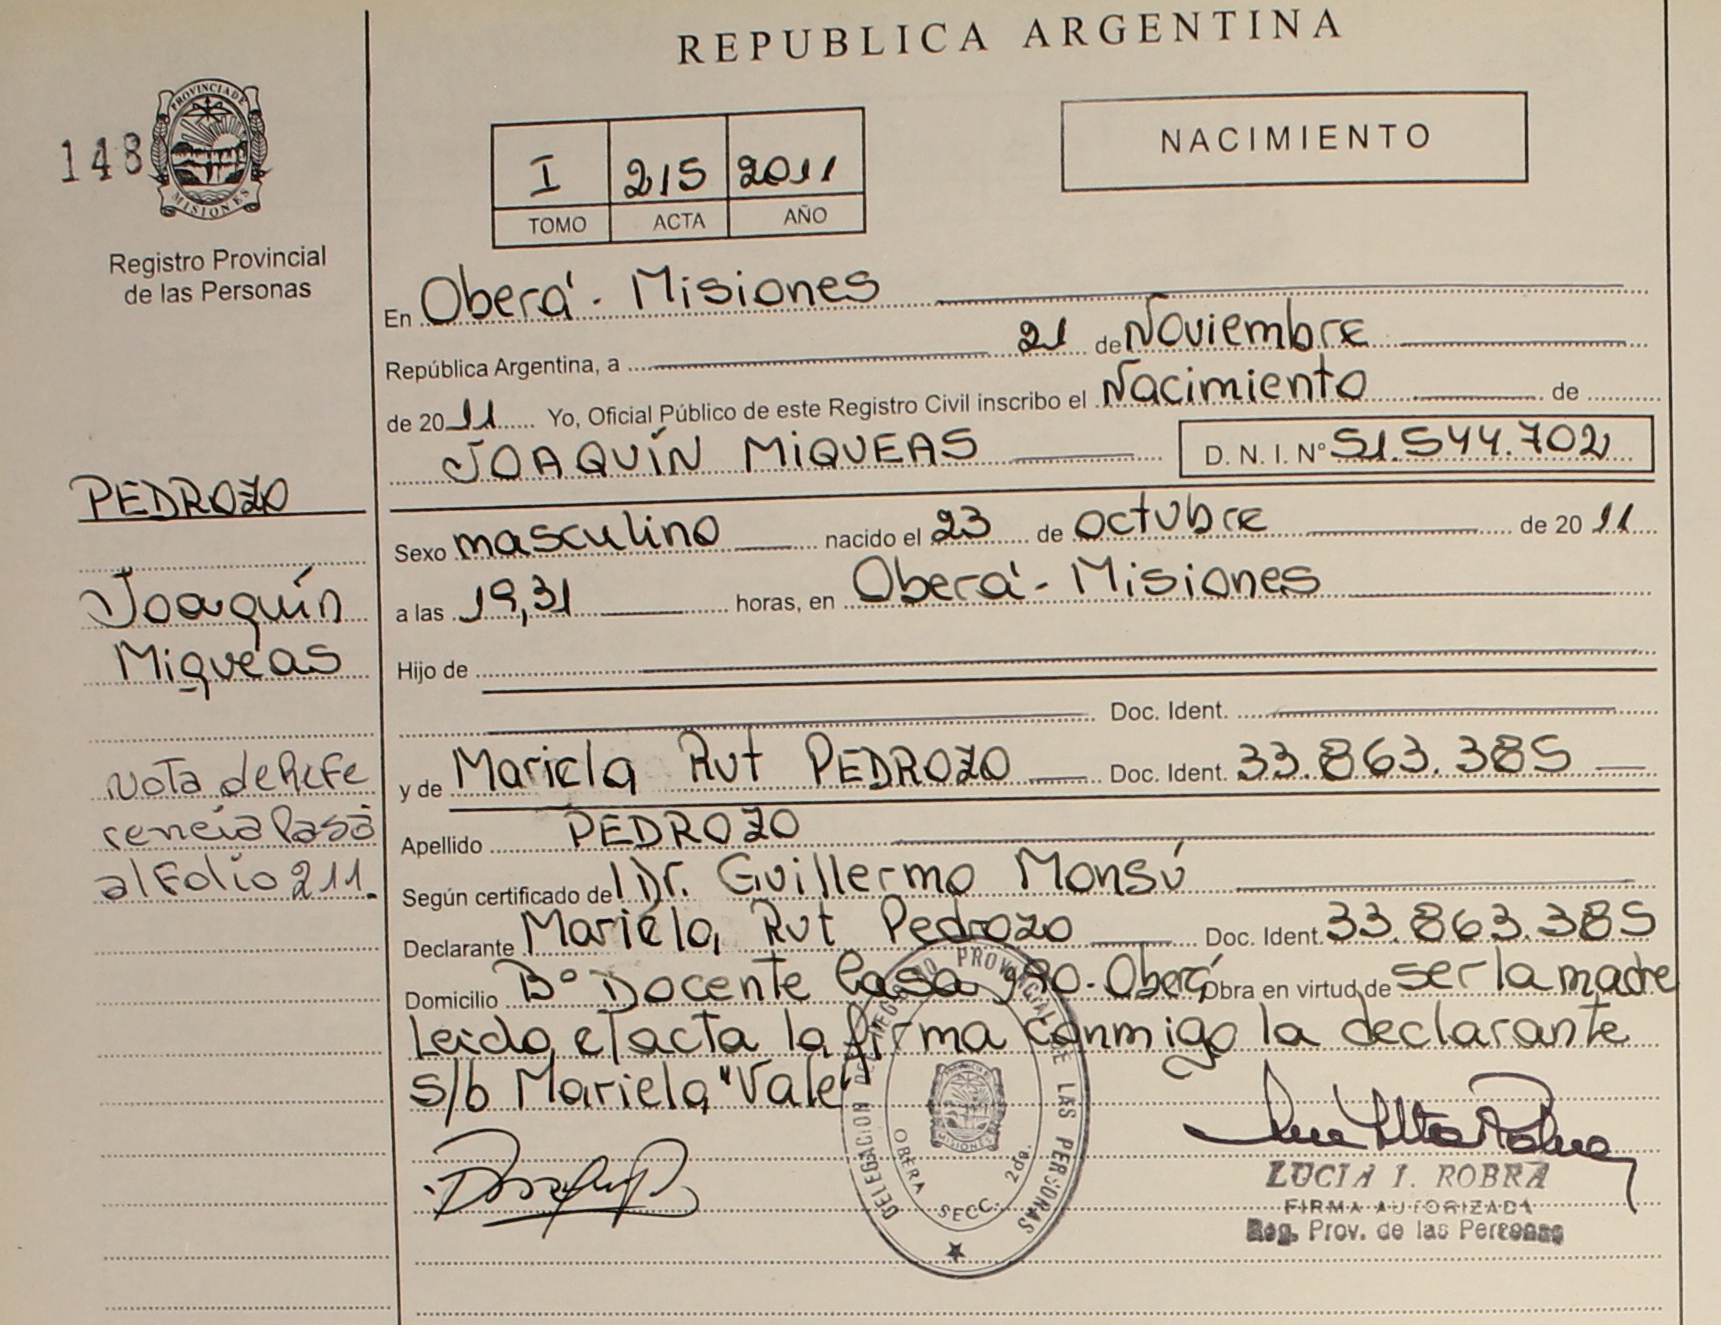 REPUBLICA ARGENTINA
148
PROVINCIA DE
MISIONES
Registro Provincial
de las Personas
I 215 2011
TOMO ACTA AÑO
NACIMIENTO
En Oberá - Misiones
República Argentina, a 21 de Noviembre
de 2011 Yo, Oficial Público de este Registro Civil inscribo el Nacimiento de
JOAQUÍN MIQUEAS D. N. I. Nº 51.544.702
PEDROZO
Joaquín
Miqueas
Sexo masculino nacido el 23 de octubre de 2011
a las 19,31 horas, en Oberá - Misiones
Hijo de
Doc. Ident.
y de Mariela Rut PEDROZO Doc. Ident. 33.863.385
Apellido PEDROZO
Según certificado de Dr. Guillermo Monsú
Declarante Mariela Rut Pedrozo Doc. Ident. 33.863.385
Domicilio Bº Docente Casa 90 - Oberá Obra en virtud de ser la madre
Leida el acta la firma conmigo la declarante
s/b Mariela "Vale"
Nota de Refe
rencia Pasa
al Folio 211.
DELEGACION DEL REGISTRO PROVINCIAL DE LAS PERSONAS
OBERA SECC. 2da.
MISIONES
LUCIA I. ROBRA
FIRMA AUTORIZADA
Reg. Prov. de las Personas